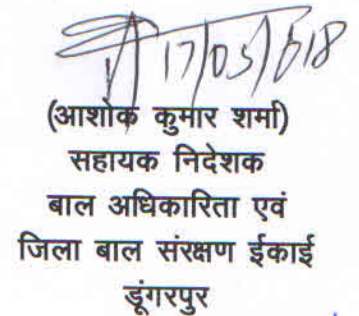 17/05/2018
(आशोक कुमार शर्मा)
सहायक निदेशक
बाल अधिकारिता एवं
जिला बाल संरक्षण ईकाई
डूंगरपुर